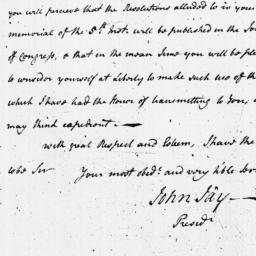 you will perceive that the Resolutions alluded to in your
memorial of the 5th Inst: will be published in the Jou
of Congress, & that in the mean Time you will be ple
to consider yourself at Liberty to make such use of th
which I have had the Honor of transmitting to you, a
may think expedient. —
with great Respect and Esteem, I have the
to be Sir
Your most obedt. and very hble Ser
John Jay —
Presidt